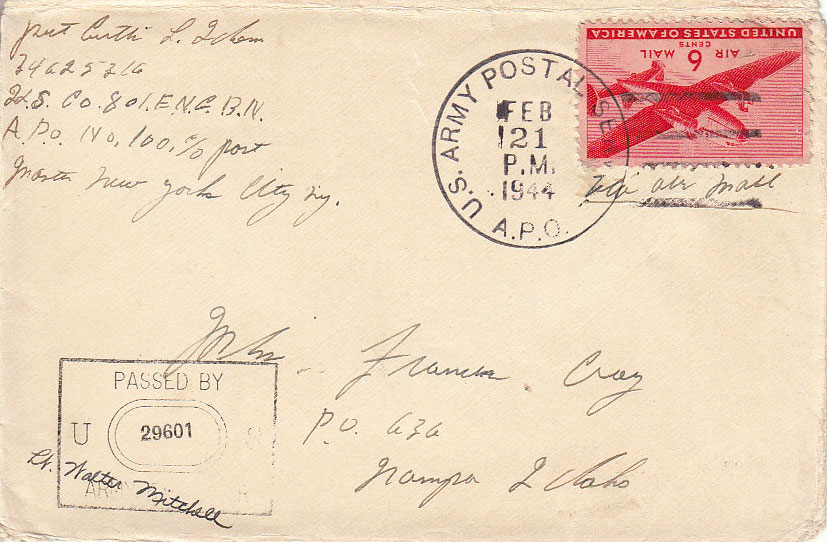 Pvt Curtis L.
34625316
S. Co. 801. E.N.G. B.N.
A.Po. No, 100, c/o post
master New york City ny.
UNITED STATES OF AMERICA
AIR 6 MAIL
CENTS
U.S. ARMY POSTAL SE
FEB
21
P.M.
1944
A.P.O.
via air mail
Francis Cray
P.O. 636
Nampa Idaho
PASSED BY
U S
29601
Lt. Walter Mitchell
AR